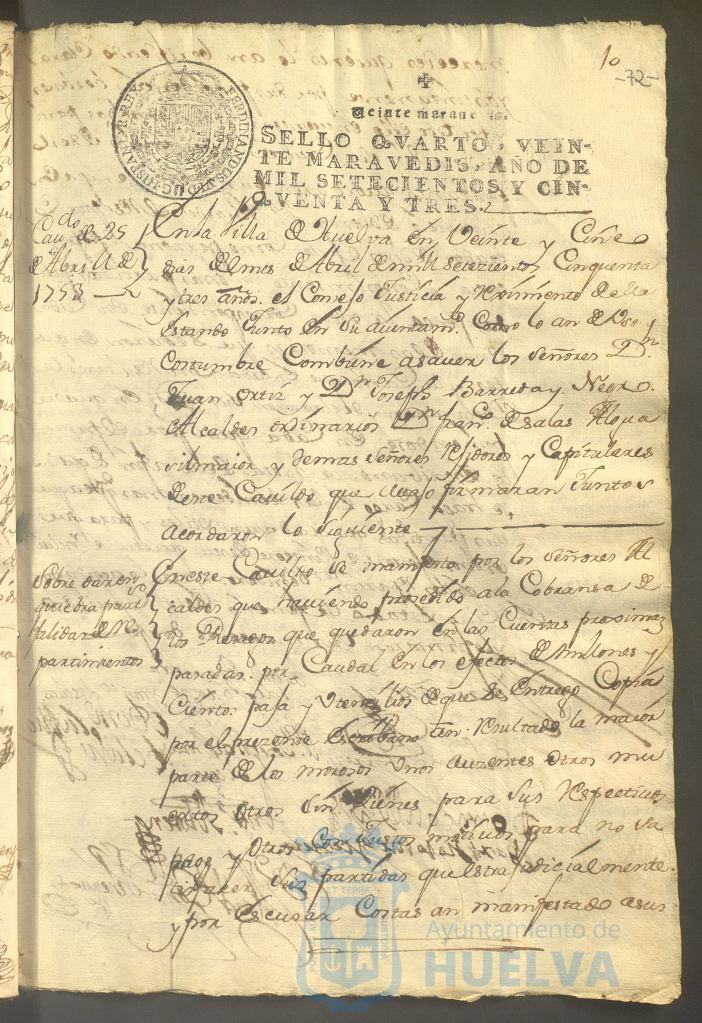 10
-72-
Veinte maravedis.
SELLO QVARTO, VEIN-
TE MARAVEDIS, AÑO DE
MIL SETECIENTOS Y CIN-
QVENTA Y TRES.
FERDINANDUS VI D G HISPANIAR REX
Cavdo de 25
de Abril de
1753
En la Villa de Huelva en Veinte y Cinco
dias del mes de Abril de mill setezientos Cinquenta
y tres años. el Consejo Justicia y reximiento de ella
estando Junto en su aiuntamto. Como lo an de Vso y
Costumbre Combiene asauer los señores Dn.
Juan ortiz y Dn Joseph Barreda y Negro.
Alcaldes ordinarios Dn franco. de salas Algua
sil maior y demas señores rejidores y Capitulares
de este Cauildo que auajo firmaran Juntos
acordaron lo siguiente
Sobre
quiebra part
talidar de Re
partimientos
En este Cauildo se manifesto por los señores Al
caldes que hauiendo prosedido a la Cobransa de
los Rezagos que quedaron en las Cuentas proximas
pasadas. por Caudal en los efectos de millones y
Cientos paja y Utensilios de que se Entrego Copia
por el prezente Escribano an Resultado la maior
parte de los morosos Unos auzentes otros mu
ertos otros sin Vienes para sus respectivos
pagos y otros con Justos motiuos para no sa
tisfaser sus partidas que estrajudicialmente
y por Escusar Costas an manifestado a sus
Ayuntamiento de
HUELVA